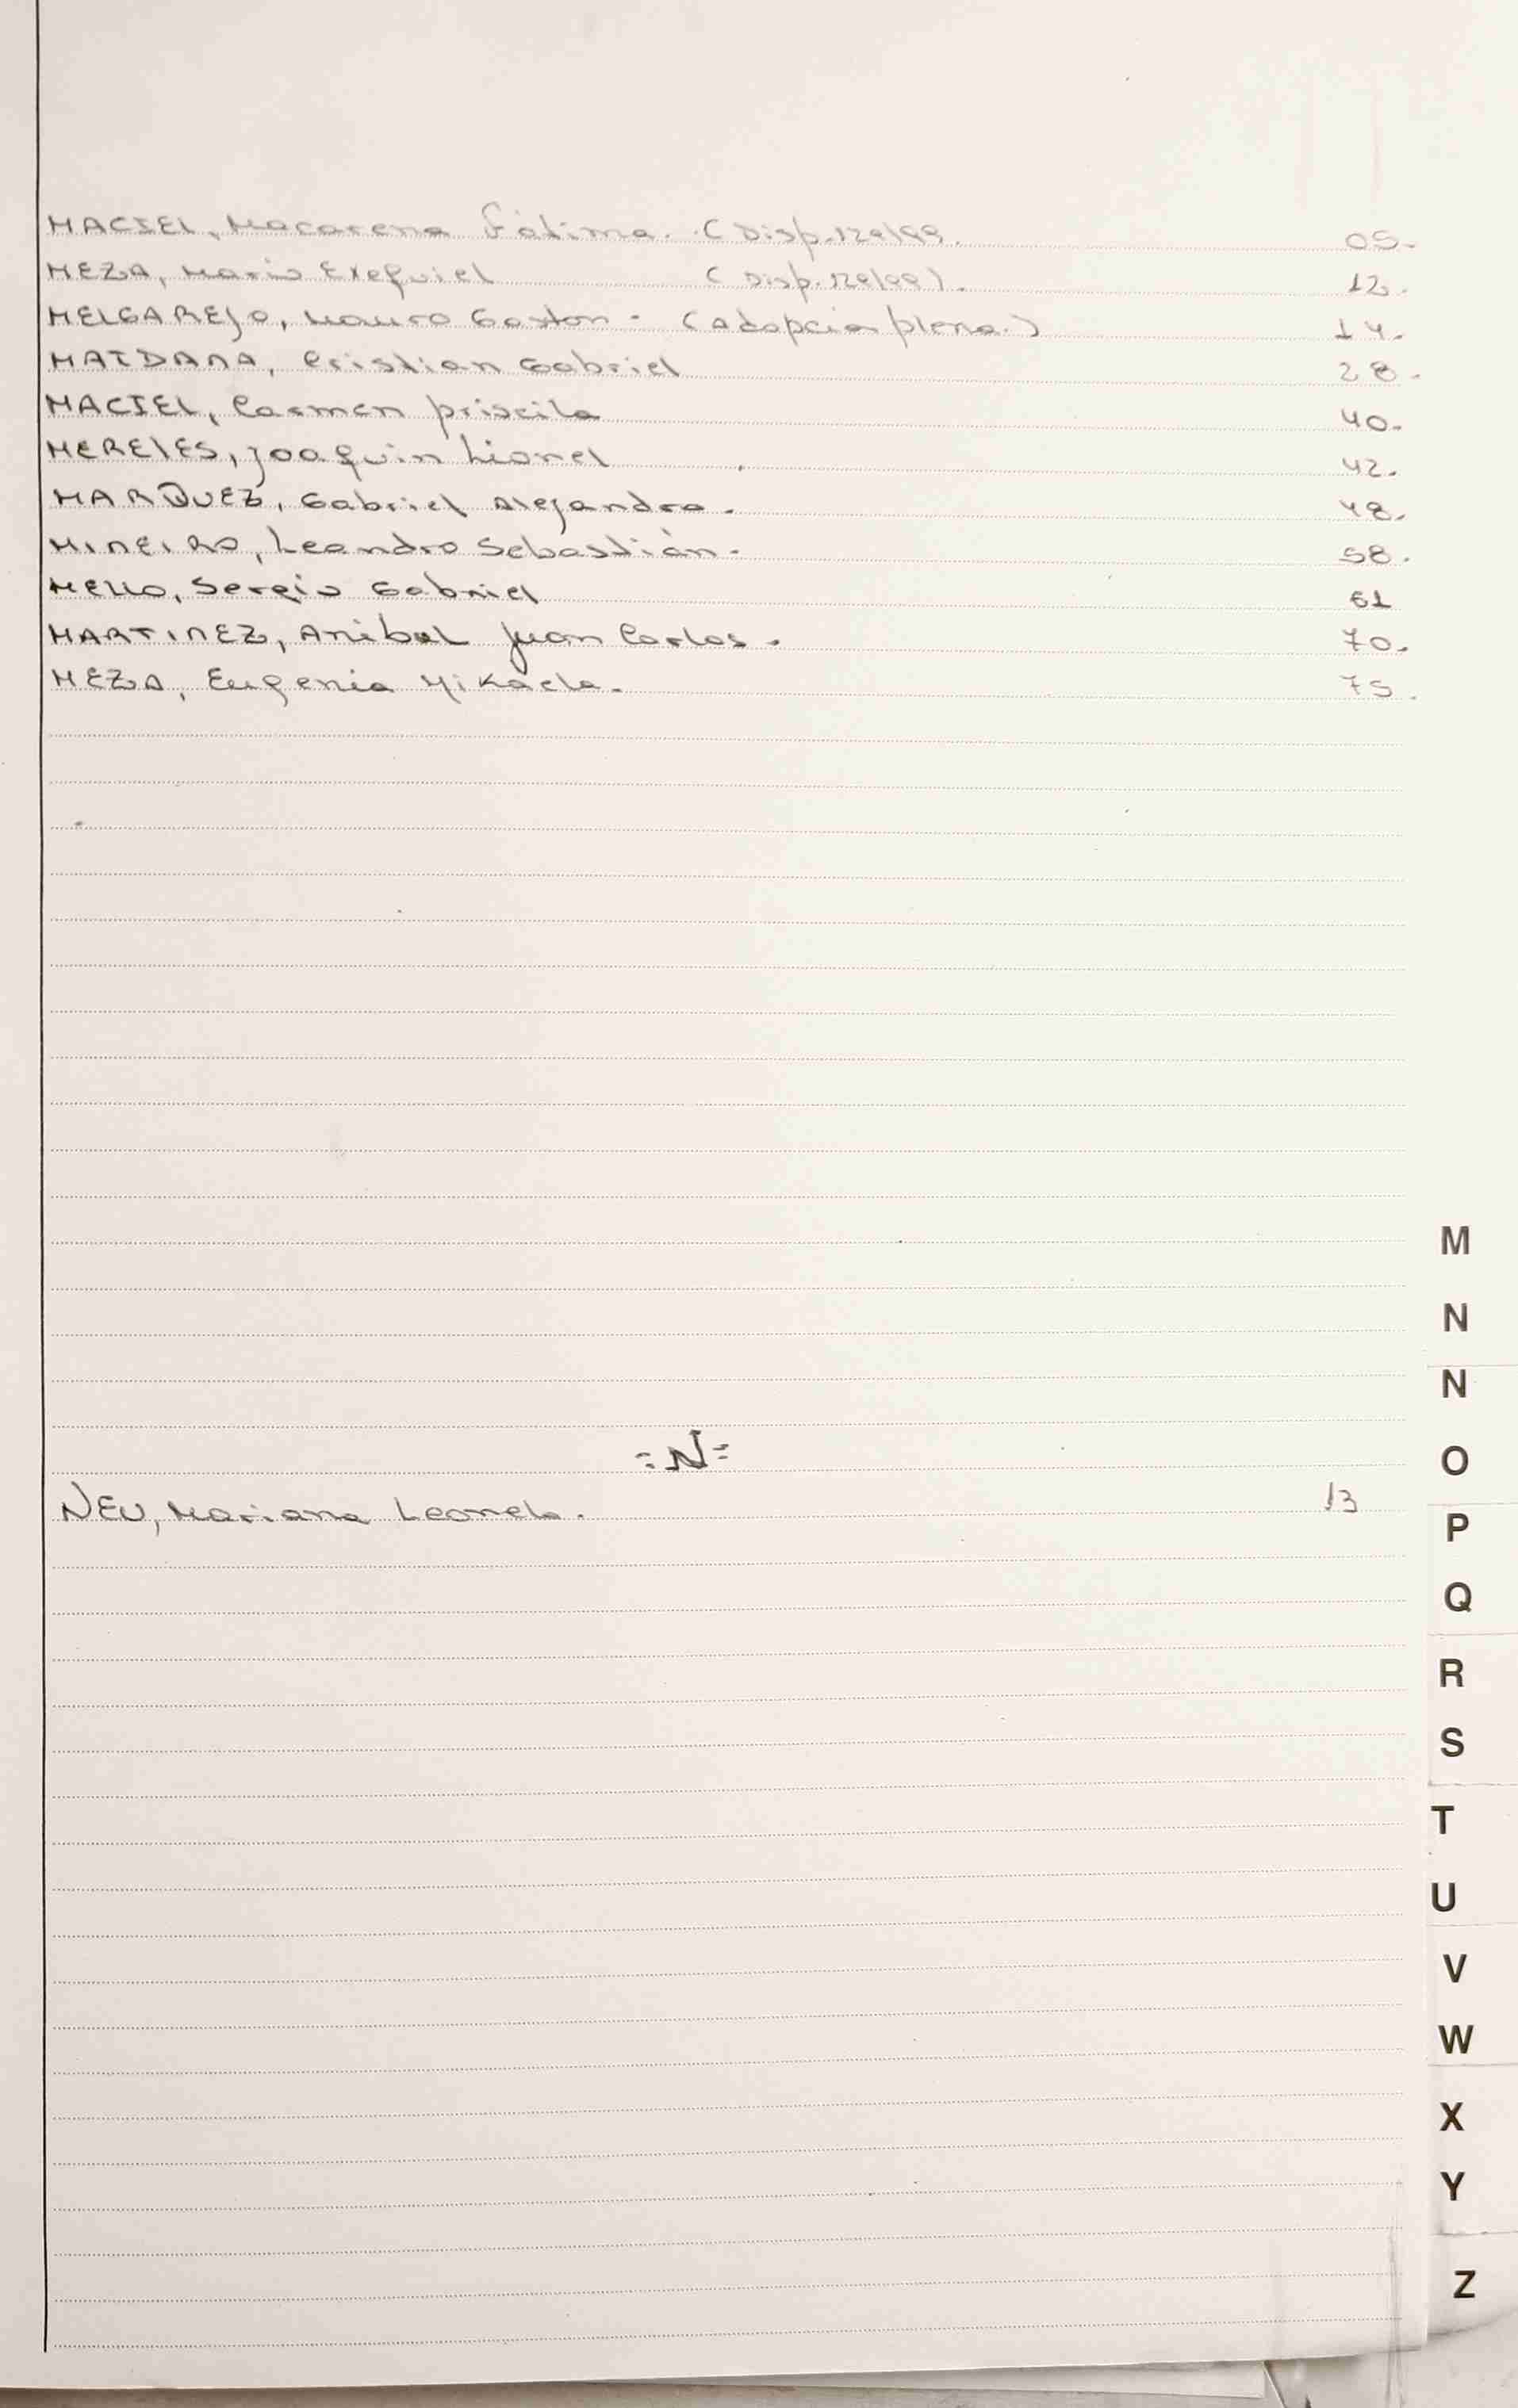 MACIEL, Macarena Fátima. (Disp. 129/99. 05.
MEZA, Mario Exequiel (Disp. 129/99). 12.
MELGAREJO, Mauro Gaston - (Adopcion plena.) 14.
MAIDANA, Cristian Gabriel 28.
MACIEL, Carmen Priscila 40.
MERELES, Joaquin Lionel 42.
MARQUEZ, Gabriel Alejandro. 48.
MINEIRO, Leandro Sebastián. 58.
MELLO, Sergio Gabriel 61
MARTINEZ, Anibal Juan Carlos. 70.
MEZA, Eugenia Mikaela. 75.
M
N
N
O
=N=
NEU, Mariana Leonela. 13
P
Q
R
S
T
U
V
W
X
Y
Z